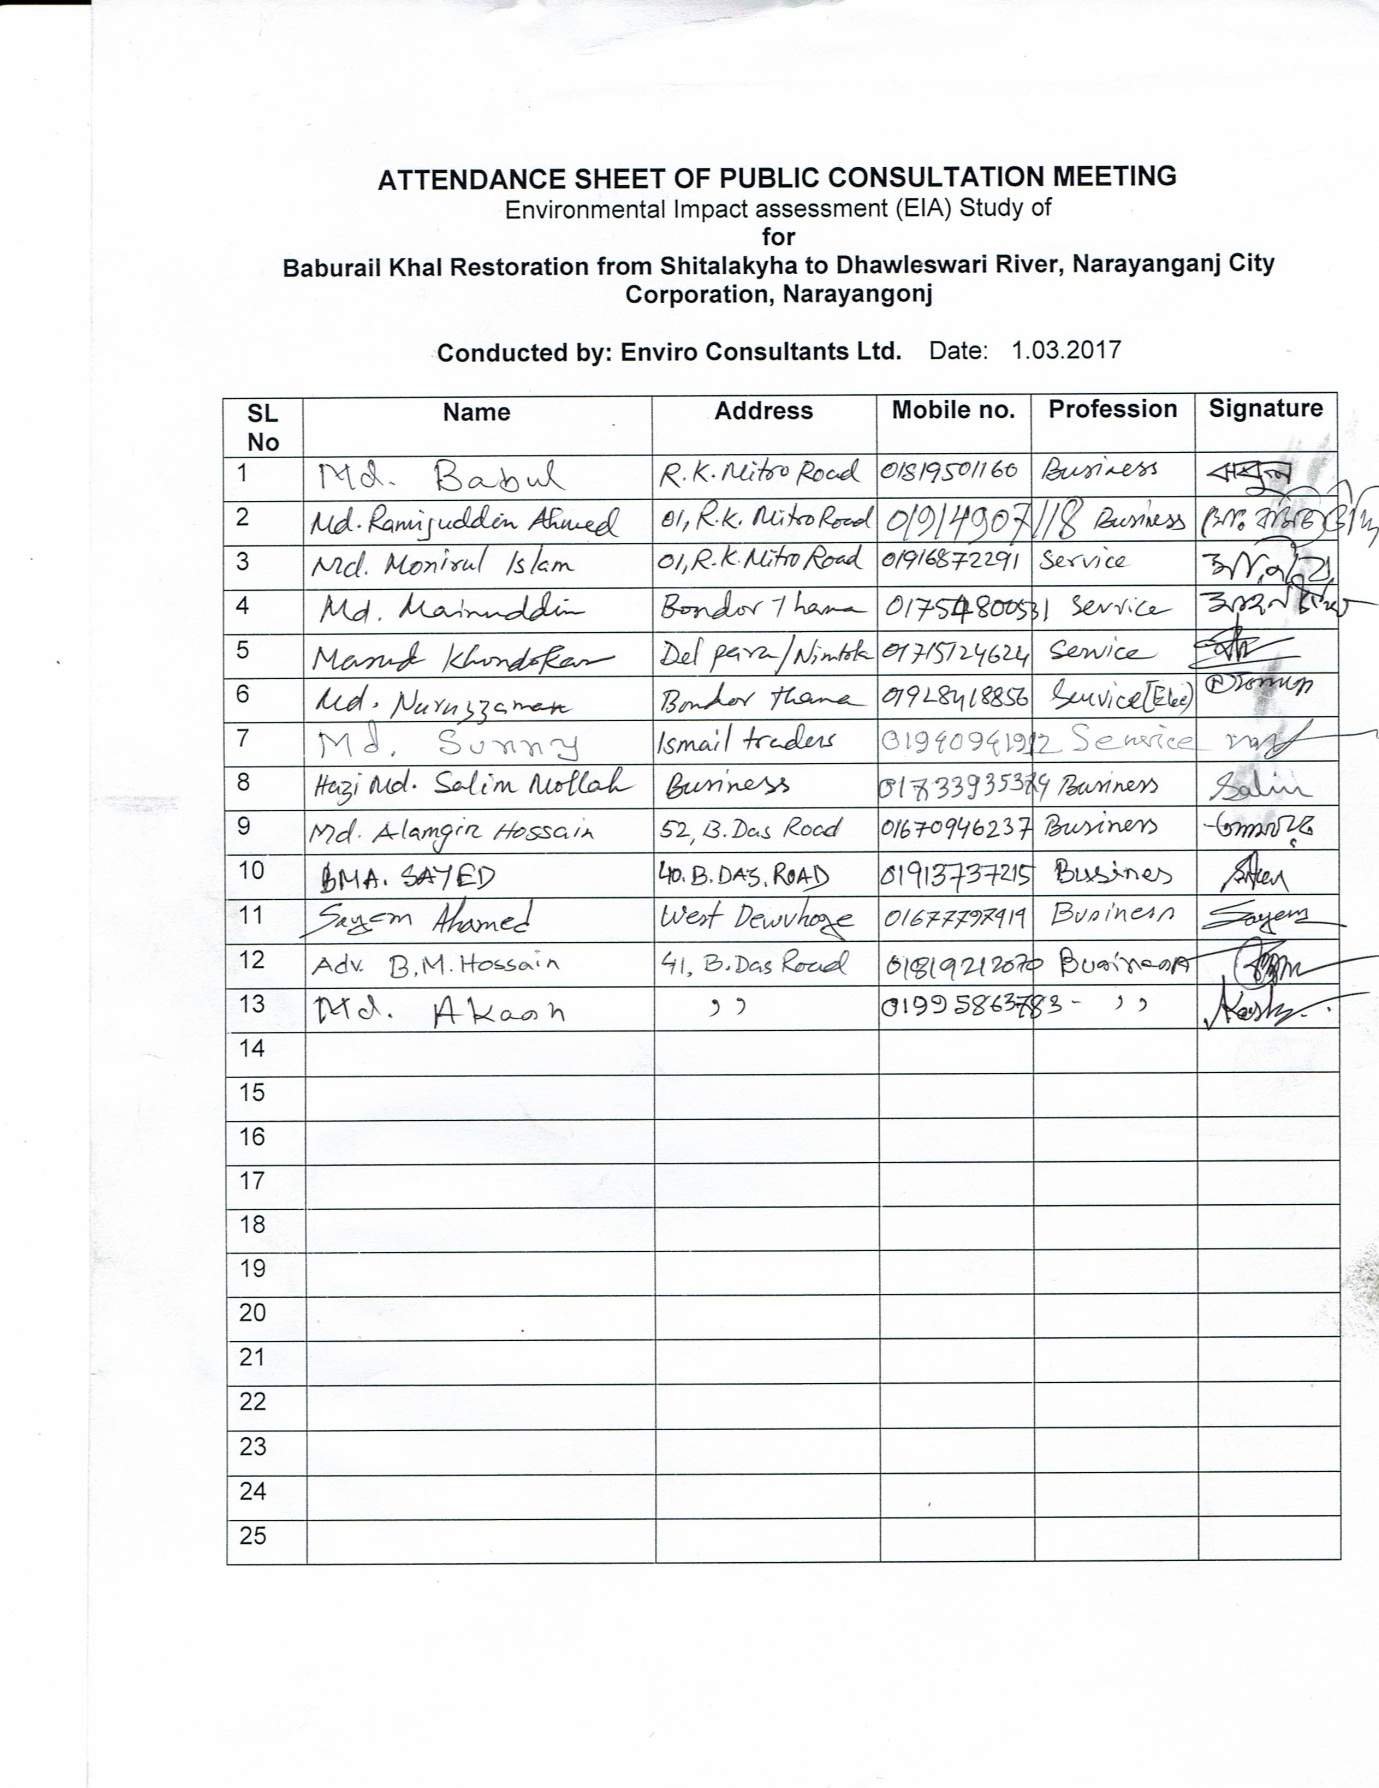 ATTENDANCE SHEET OF PUBLIC CONSULTATION MEETING
Environmental Impact assessment (EIA) Study of
for
Baburail Khal Restoration from Shitalakyha to Dhawleswari River, Narayanganj City
Corporation, Narayangonj
Conducted by: Enviro Consultants Ltd. Date: 1.03.2017
SL No Name Address Mobile no. Profession Signature
1 Md. Babul R.K. Mitro Road 01819501160 Business বাবুল
2 Md. Ramijuddin Ahmed 01, R.K. Mitro Road 01914907118 Business
3 Md. Monirul Islam 01, R.K. Mitro Road 01916872291 Service
4 Md. Mainuddin Bondor Thana Service
5 Masud Khondokar Del para/Nimtola 01715124624 Service
6 Md. Nuruzzaman Bondor thana 01928418856 Service
7 Md. Sunny Ismail traders Service
8 Hazi Md. Salim Mollah Business Business Salim
9 Md. Alamgir Hossain 52, B. Das Road 01670946237 Business
10 BMA. SAYED 40. B. DAS. ROAD 01913737215 Busines
11 Sayem Ahamed West Dewvhoge Business Sayem
12 Adv. B.M. Hossain 41, B. Das Road 01819212070 Business
13 Md. Akash ,, 01995863783 - ,, Akash
14
15
16
17
18
19
20
21
22
23
24
25